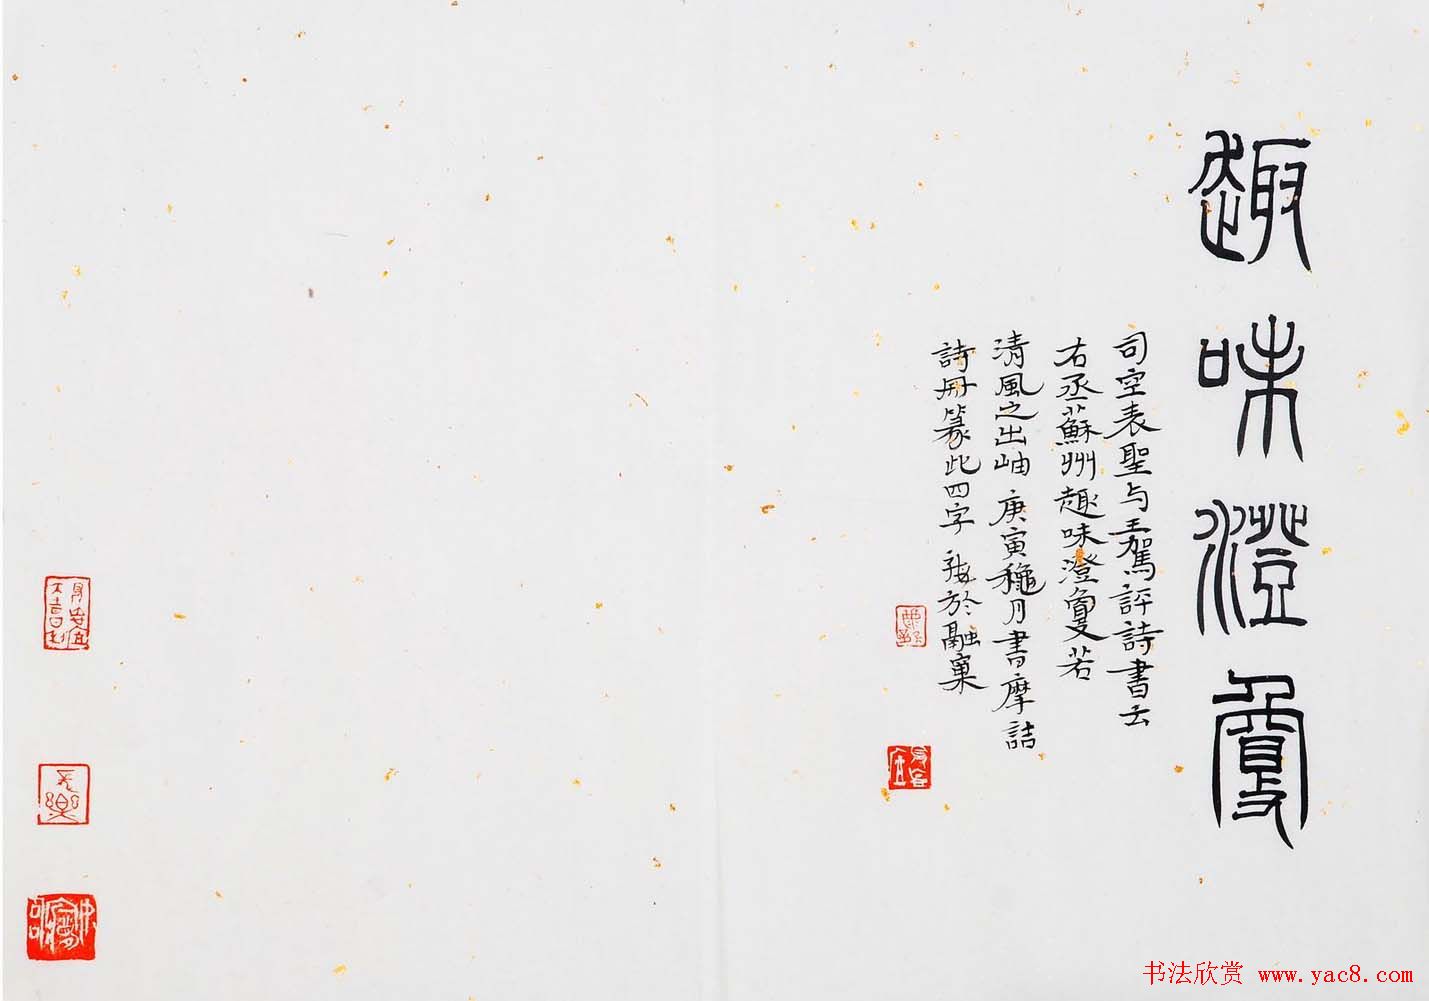 趣味澄敻
司空表聖与王駕評詩書云
右丞蘇州趣味澄敻若
清風之出岫 庚寅龝月書摩詰
詩冊篆此四字 於融窠
书法欣赏 www.yac8.com